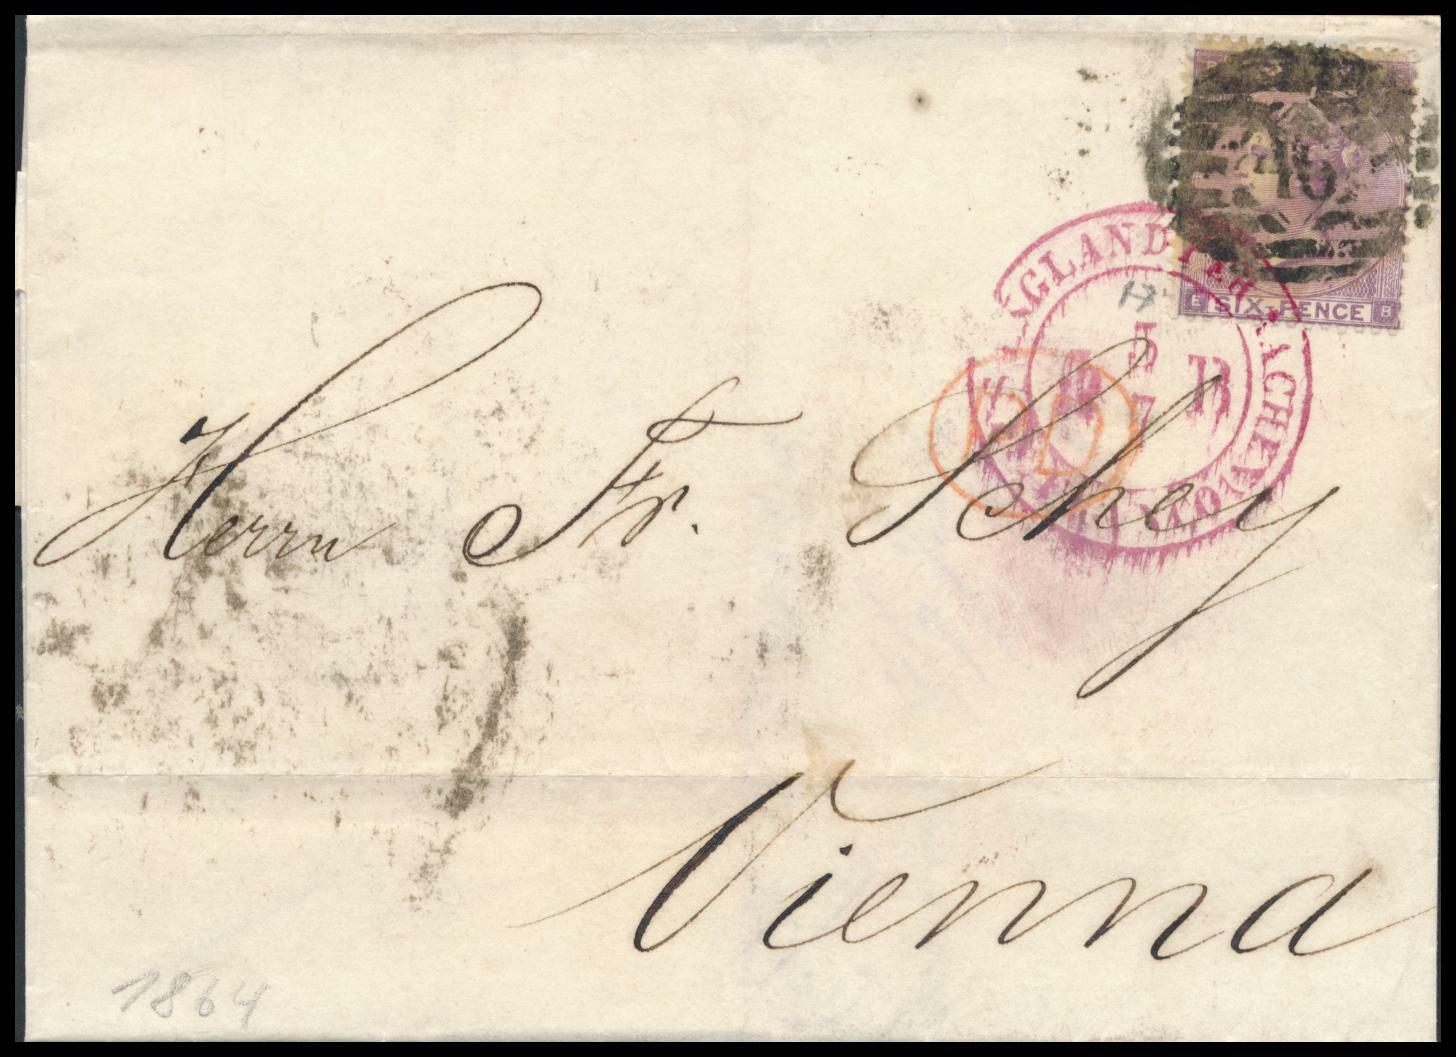 E SIX-PENCE B
ENGLAND PER AACHEN
5
B
7
PD
Herrn Fr. Schey
Vienna
1864